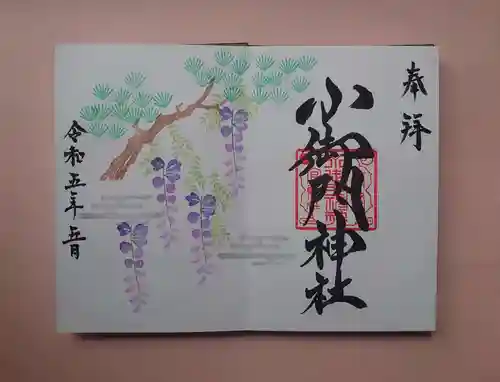 奉拝
小御門神社
令和五年 五月